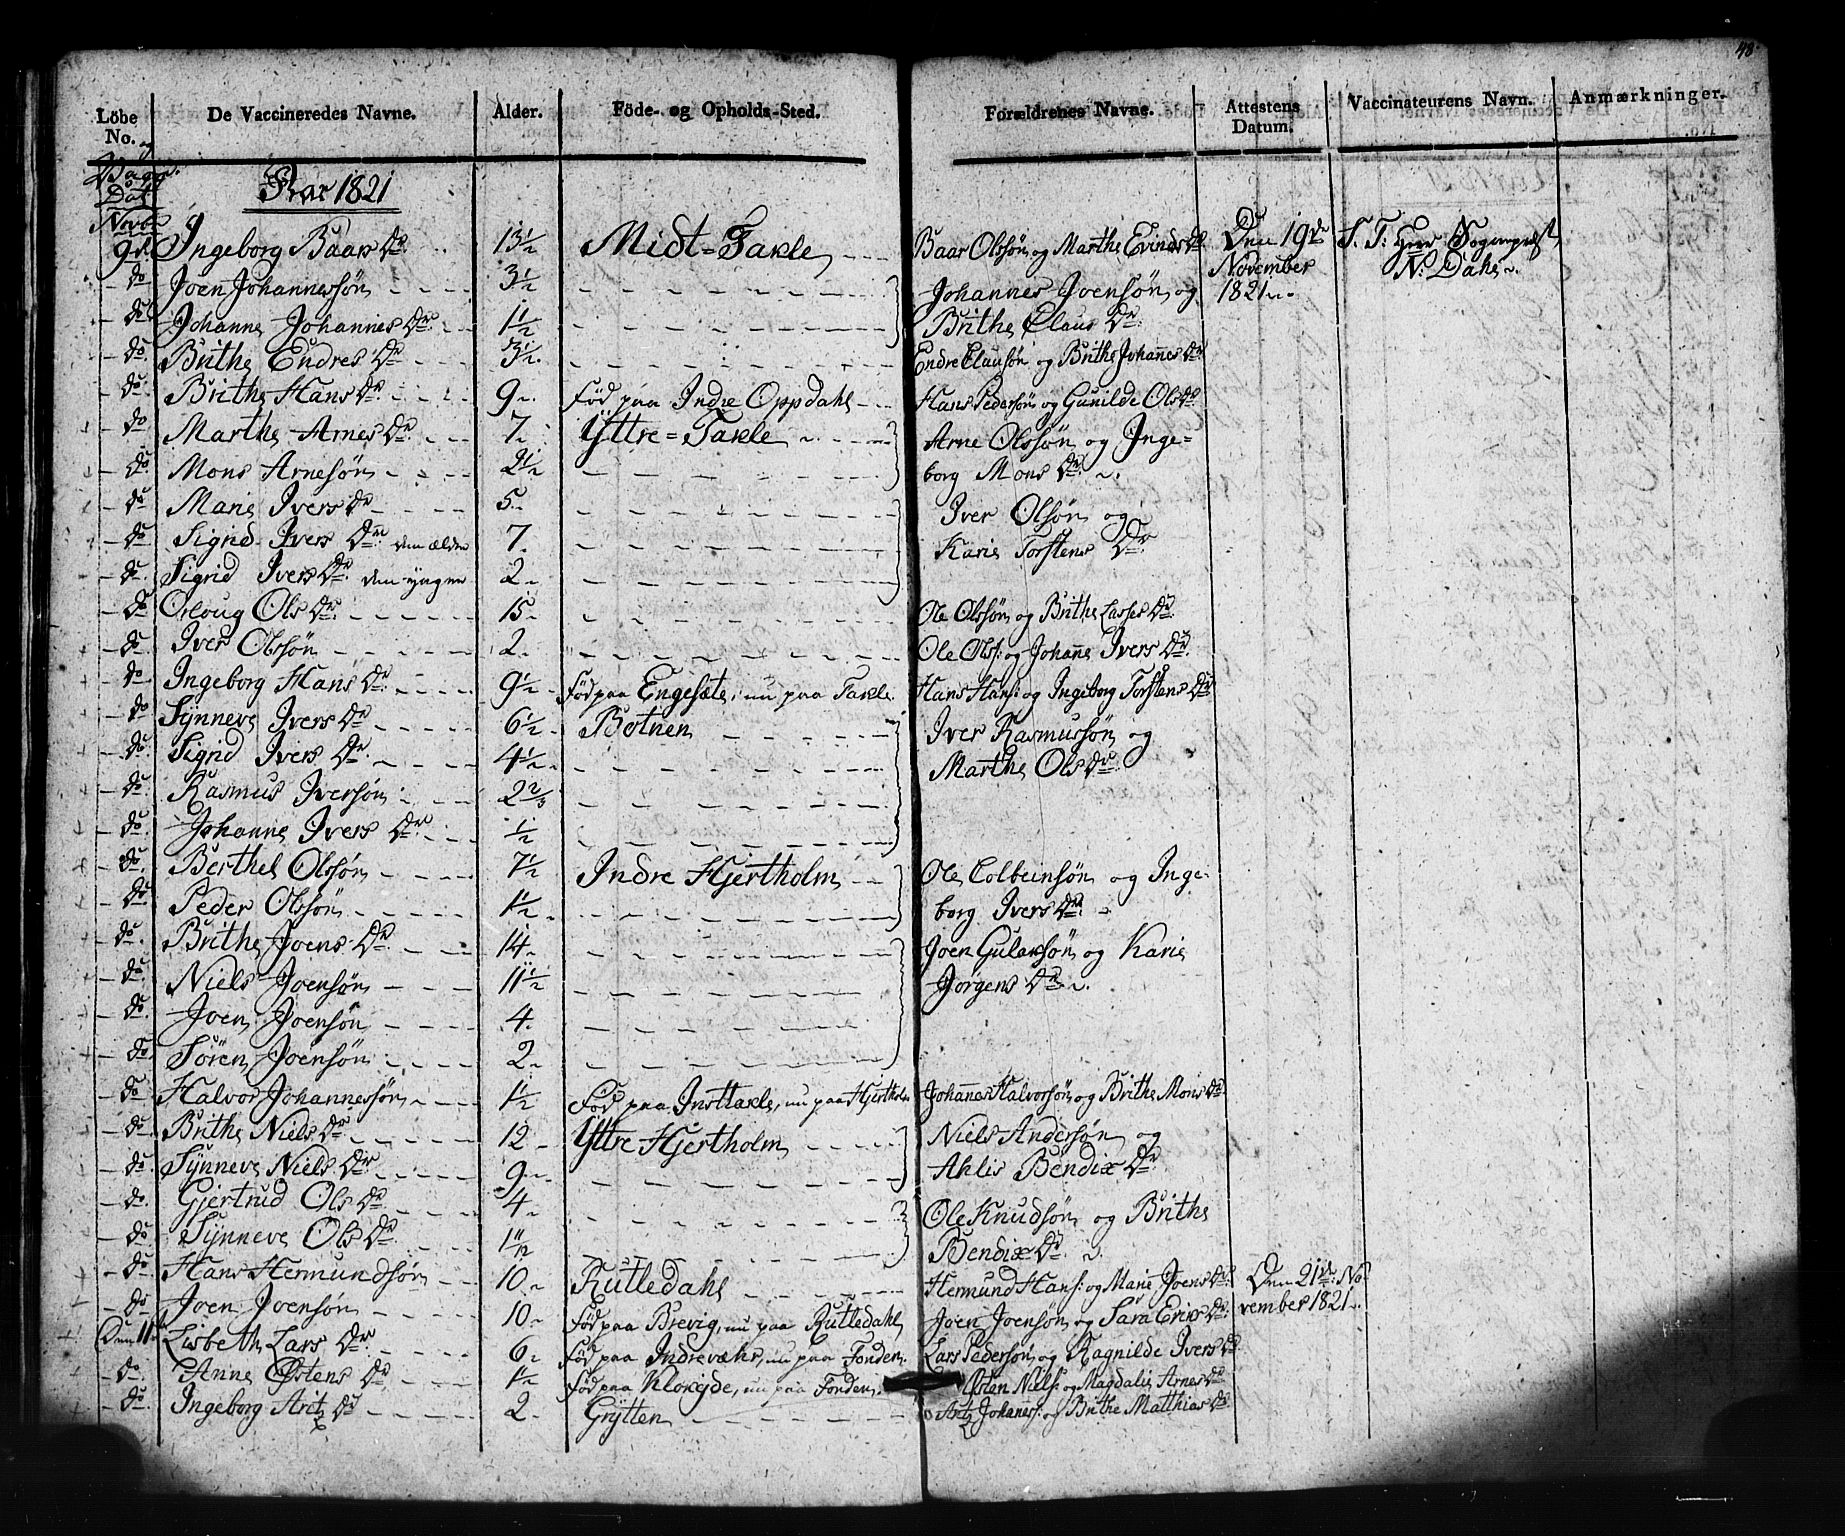 48.
Löbe No. De Vaccineredes Navne. Alder. Föde- og Opholds-Sted. Forældrenes Navne. Attestens Datum. Vaccinateurens Navn. Anmærkninger.
Aar 1821
Novbr
9de Ingeborg Baars Dr 13½ Midt-Takle Baar Olssön og Marthe Evinds Dr Den 19de S. T: Herr Sognepræst
do Joen Johannessön 3½ Johannes Joensön og November N: Dahl
do Johanne Johannes Dr 1½ Brithe Claus Dr 1821
do Brithe Endres Dr 3½ Endre Clausön og Brithe Johannes Dr
do Brithe Hans Dr 9 Föd paa Indre Oppdahl Hans Pedersön og Gunilde Ols Dr
do Marthe Arnes Dr 7 Yttre-Takle Arne Olssön og Inge-
do Mons Arnesön 2½ borg Mons Dr
do Marie Ivers Dr 5 Iver Olsön og
do Sigrid Ivers Dr den ældre 7 Karie Torstens Dr
do Sigrid Ivers Dr den yngre 2
do Orloug Ols Dr 15 Ole Olssön og Brithe Lasses Dr
do Iver Olssön 2 Ole Olss: og Johanne Ivers Dr
do Ingeborg Hans Dr 9½ Föd paa Engesæte, nu paa Takle Hans Hans: og Ingeborg Torstens Dr
do Synneve Ivers Dr 6½ Botnen Iver Rasmussön og
do Sigrid Ivers Dr 4½ Marthe Ols Dr
do Rasmus Iversön 2⅔
do Johanne Ivers Dr ½
do Berthel Olssön 7½ Indre Hjertholm Ole Colbeinsön og Inge-
do Peder Olssön 1½ borg Ivers Dr
do Brithe Joens Dr 14 Joen Gulaksön og Karie
do Niels Joensön 11½ Jörgens Dr
do Joen Joensön 4
do Sören Joensön 2
do Halvor Johannessön 1½ Föd paa Insttakle, nu paa Hjertholm Johannes Halvorsön og Brithe Mons Dr
do Brithe Niels Dr 12 Yttre Hjertholm Niels Andersön og
do Synneve Niels Dr 9 Ahlis Bendix Dr
do Gjertrud Ols Dr 4 Ole Knudsön og Brithe
do Synneve Ols Dr Bendix Dr
do Hans Hermundsön 10 Rutledahl Hermund Hans: og Marie Joens Dr Den 21de No-
do Joen Joensön 10 Föd paa Brevig, nu paa Rutledahl Joen Joensön og Sara Erix Dr vember 1821
Den 11te Lisbeth Lars Dr 6 Föd paa Indrevæhr, nu paa Fonden Lars Pedersön og Ragnilde Ivers Dr
do Anne Östens Dr 1½ Föd paa Kloxejde, nu paa Fonden Östen Niels: og Magdalie Arnes Dr
do Ingeborg Aritz Dr 2 Grytten Aritz Johanness: og Brithe Matthias Dr